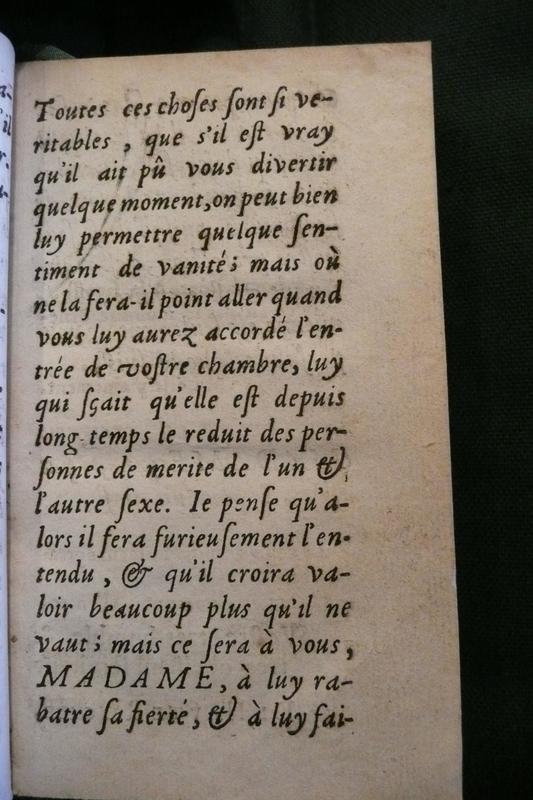 Toutes ces choſes ſont ſi ve-
ritables , que s'il eſt vray
qu'il ait pû vous divertir
quelque moment, on peut bien
luy permettre quelque ſen-
timent de vanité ; mais où
ne la fera-il point aller quand
vous luy aurez accordé l'en-
trée de voſtre chambre, luy
qui ſçait qu'elle eſt depuis
long-temps le reduit des per-
ſonnes de merite de l'un &
l'autre ſexe. Ie penſe qu'a-
lors il fera furieuſement l'en-
tendu , & qu'il croira va-
loir beaucoup plus qu'il ne
vaut ; mais ce ſera à vous ,
MADAME, à luy ra-
batre ſa fierté , & à luy fai-